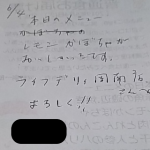 6/4
本日のメニュー
かぼちゃの
レモンかぼちゃが
おいしそうです。
ライフデリ
よろしく!!